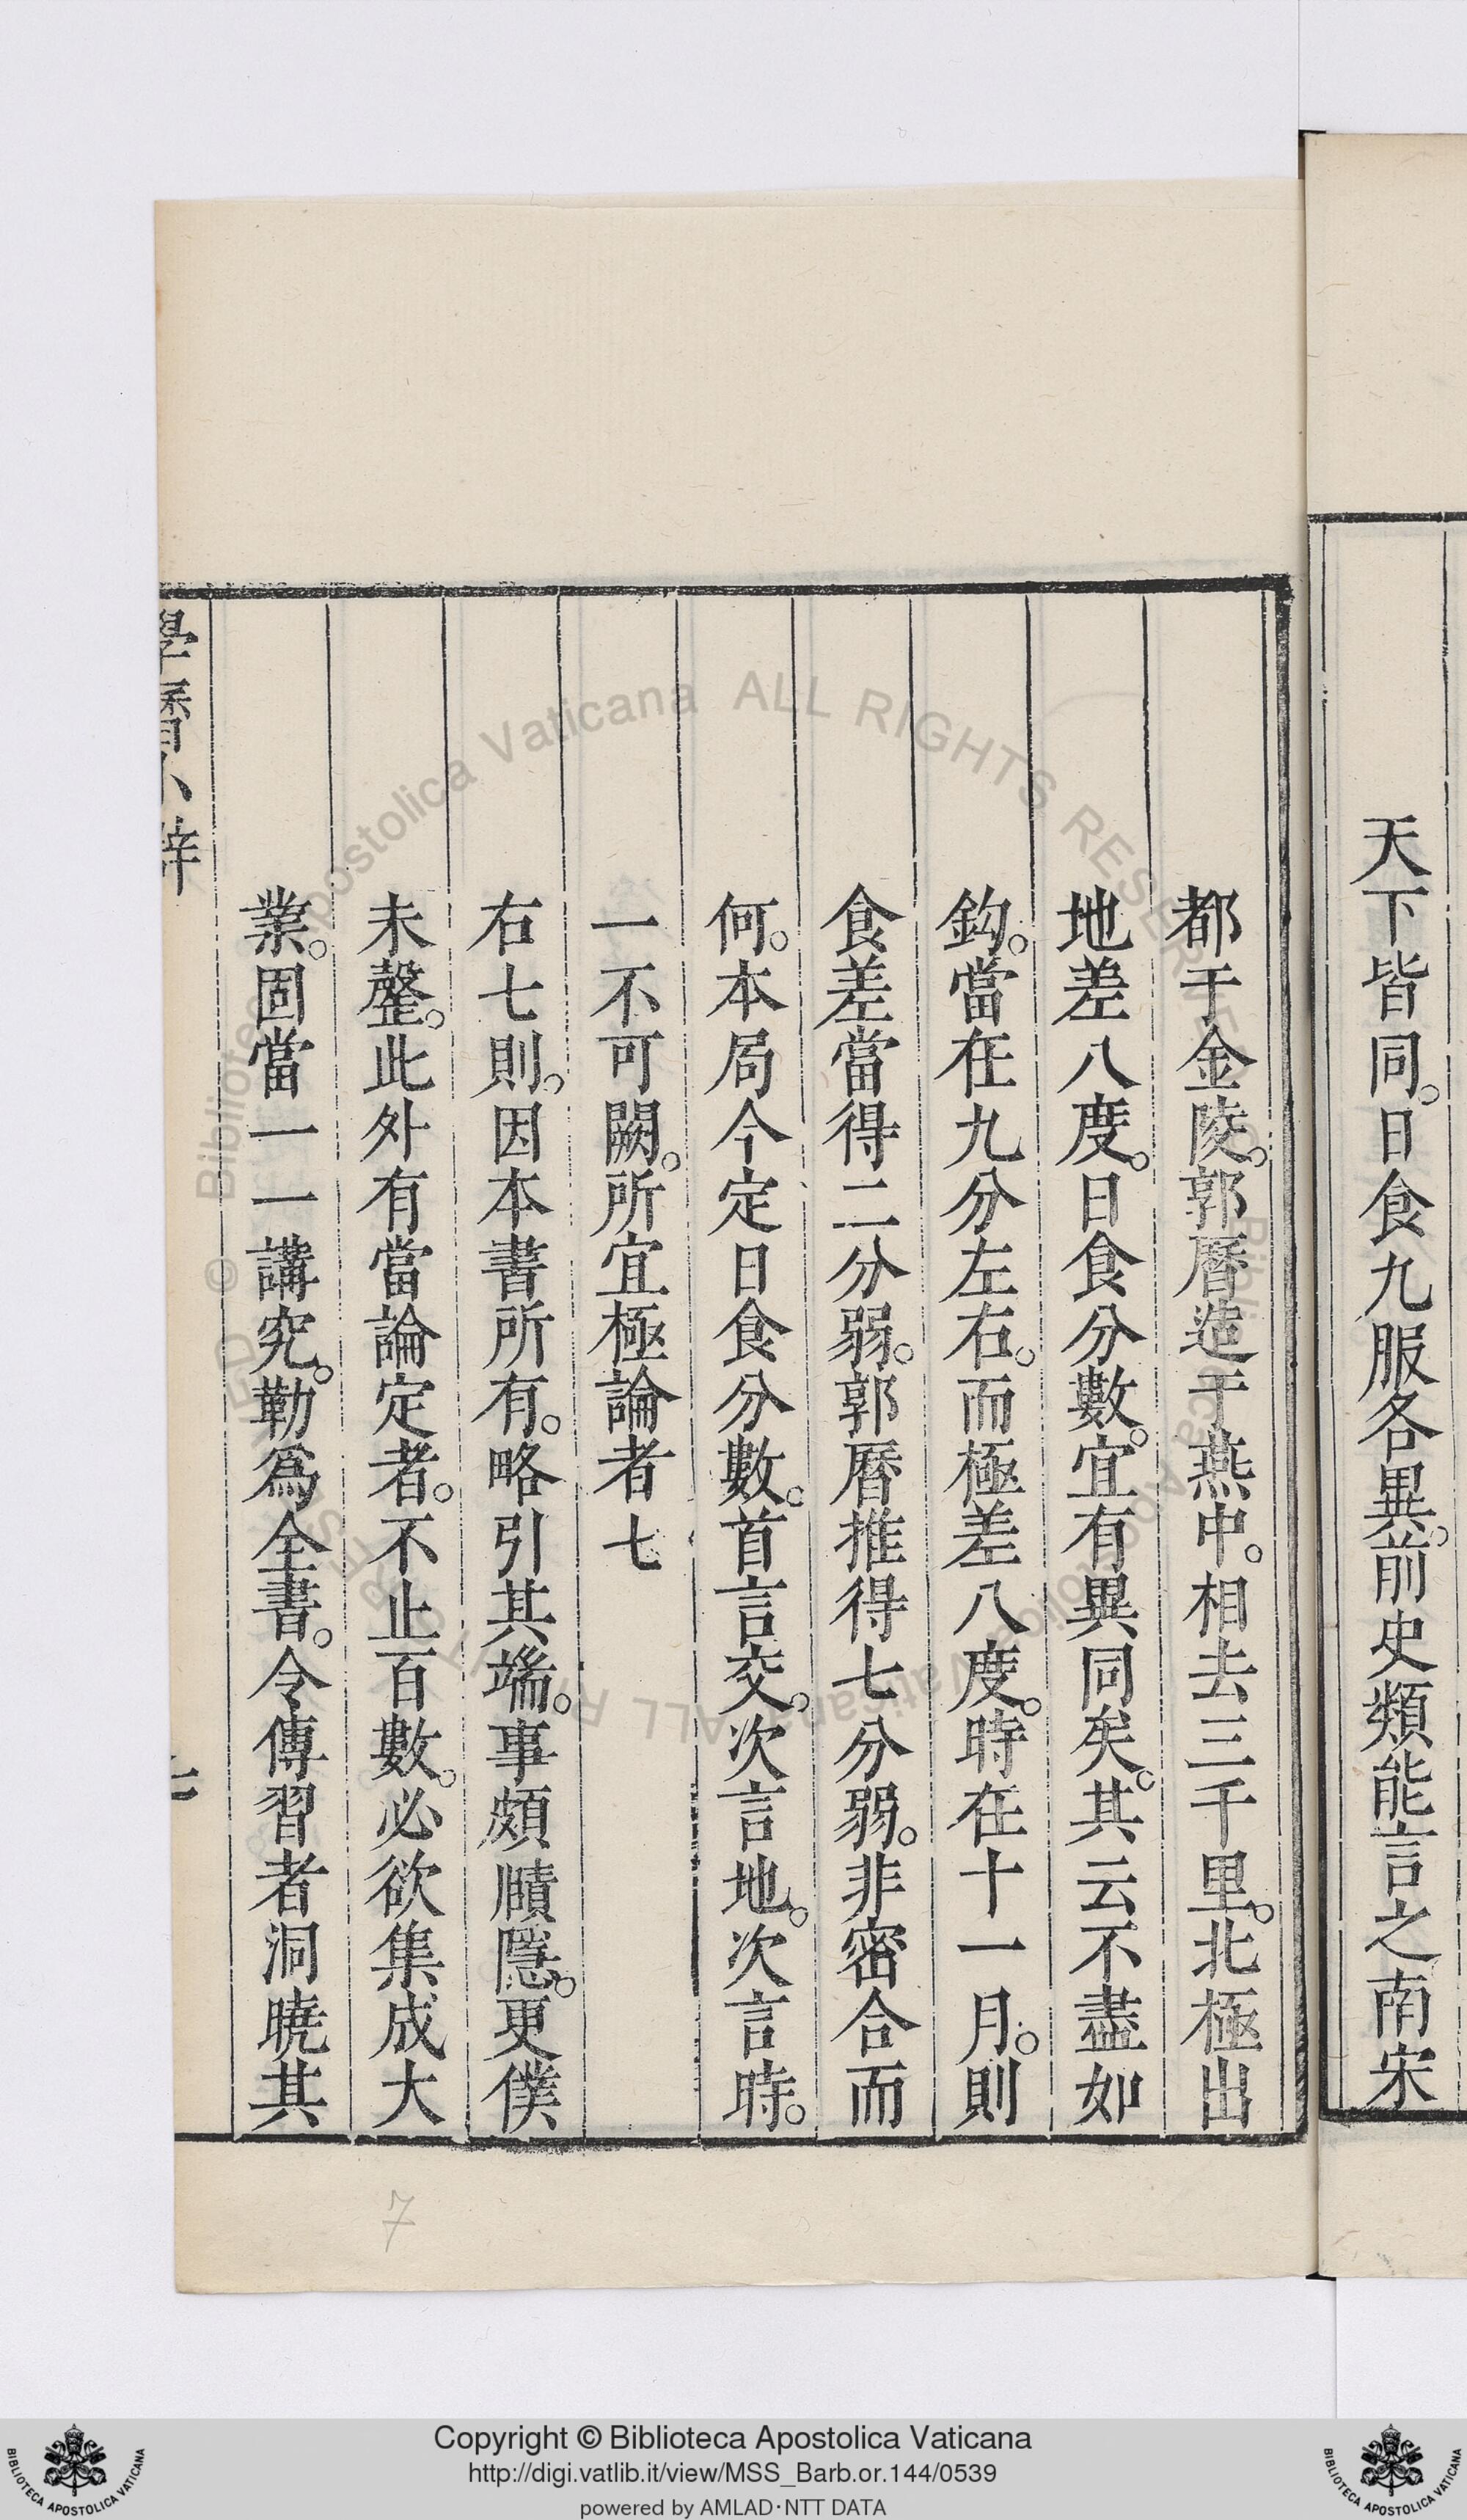 天下皆同。日食九服各異。前史類能言之南宋
都于金陵。郭曆造于燕中。相去三千里。北極出
地差八度。日食分數。宜有異同矣。其云不盡如
鈎。當在九分左右。而極差八度。時在十一月。則
食差當得二分弱。郭曆推得七分弱。非密合而
何。本局今定日食分數。首言交。次言地。次言時。
一不可闕。所宜極論者七
右七則。因本書所有。略引其端。事頗賾隱。更僕
未罄。此外有當論定者。不止百數。必欲集成大
業。固當一一講究。勒爲全書。令傳習者洞曉其
學曆小辯
7
Copyright © Biblioteca Apostolica Vaticana
http://digi.vatlib.it/view/MSS_Barb.or.144/0539
powered by AMLAD·NTT DATA
BIBLIOTECA APOSTOLICA VATICANA
BIBLIOTECA APOSTOLICA VATICANA